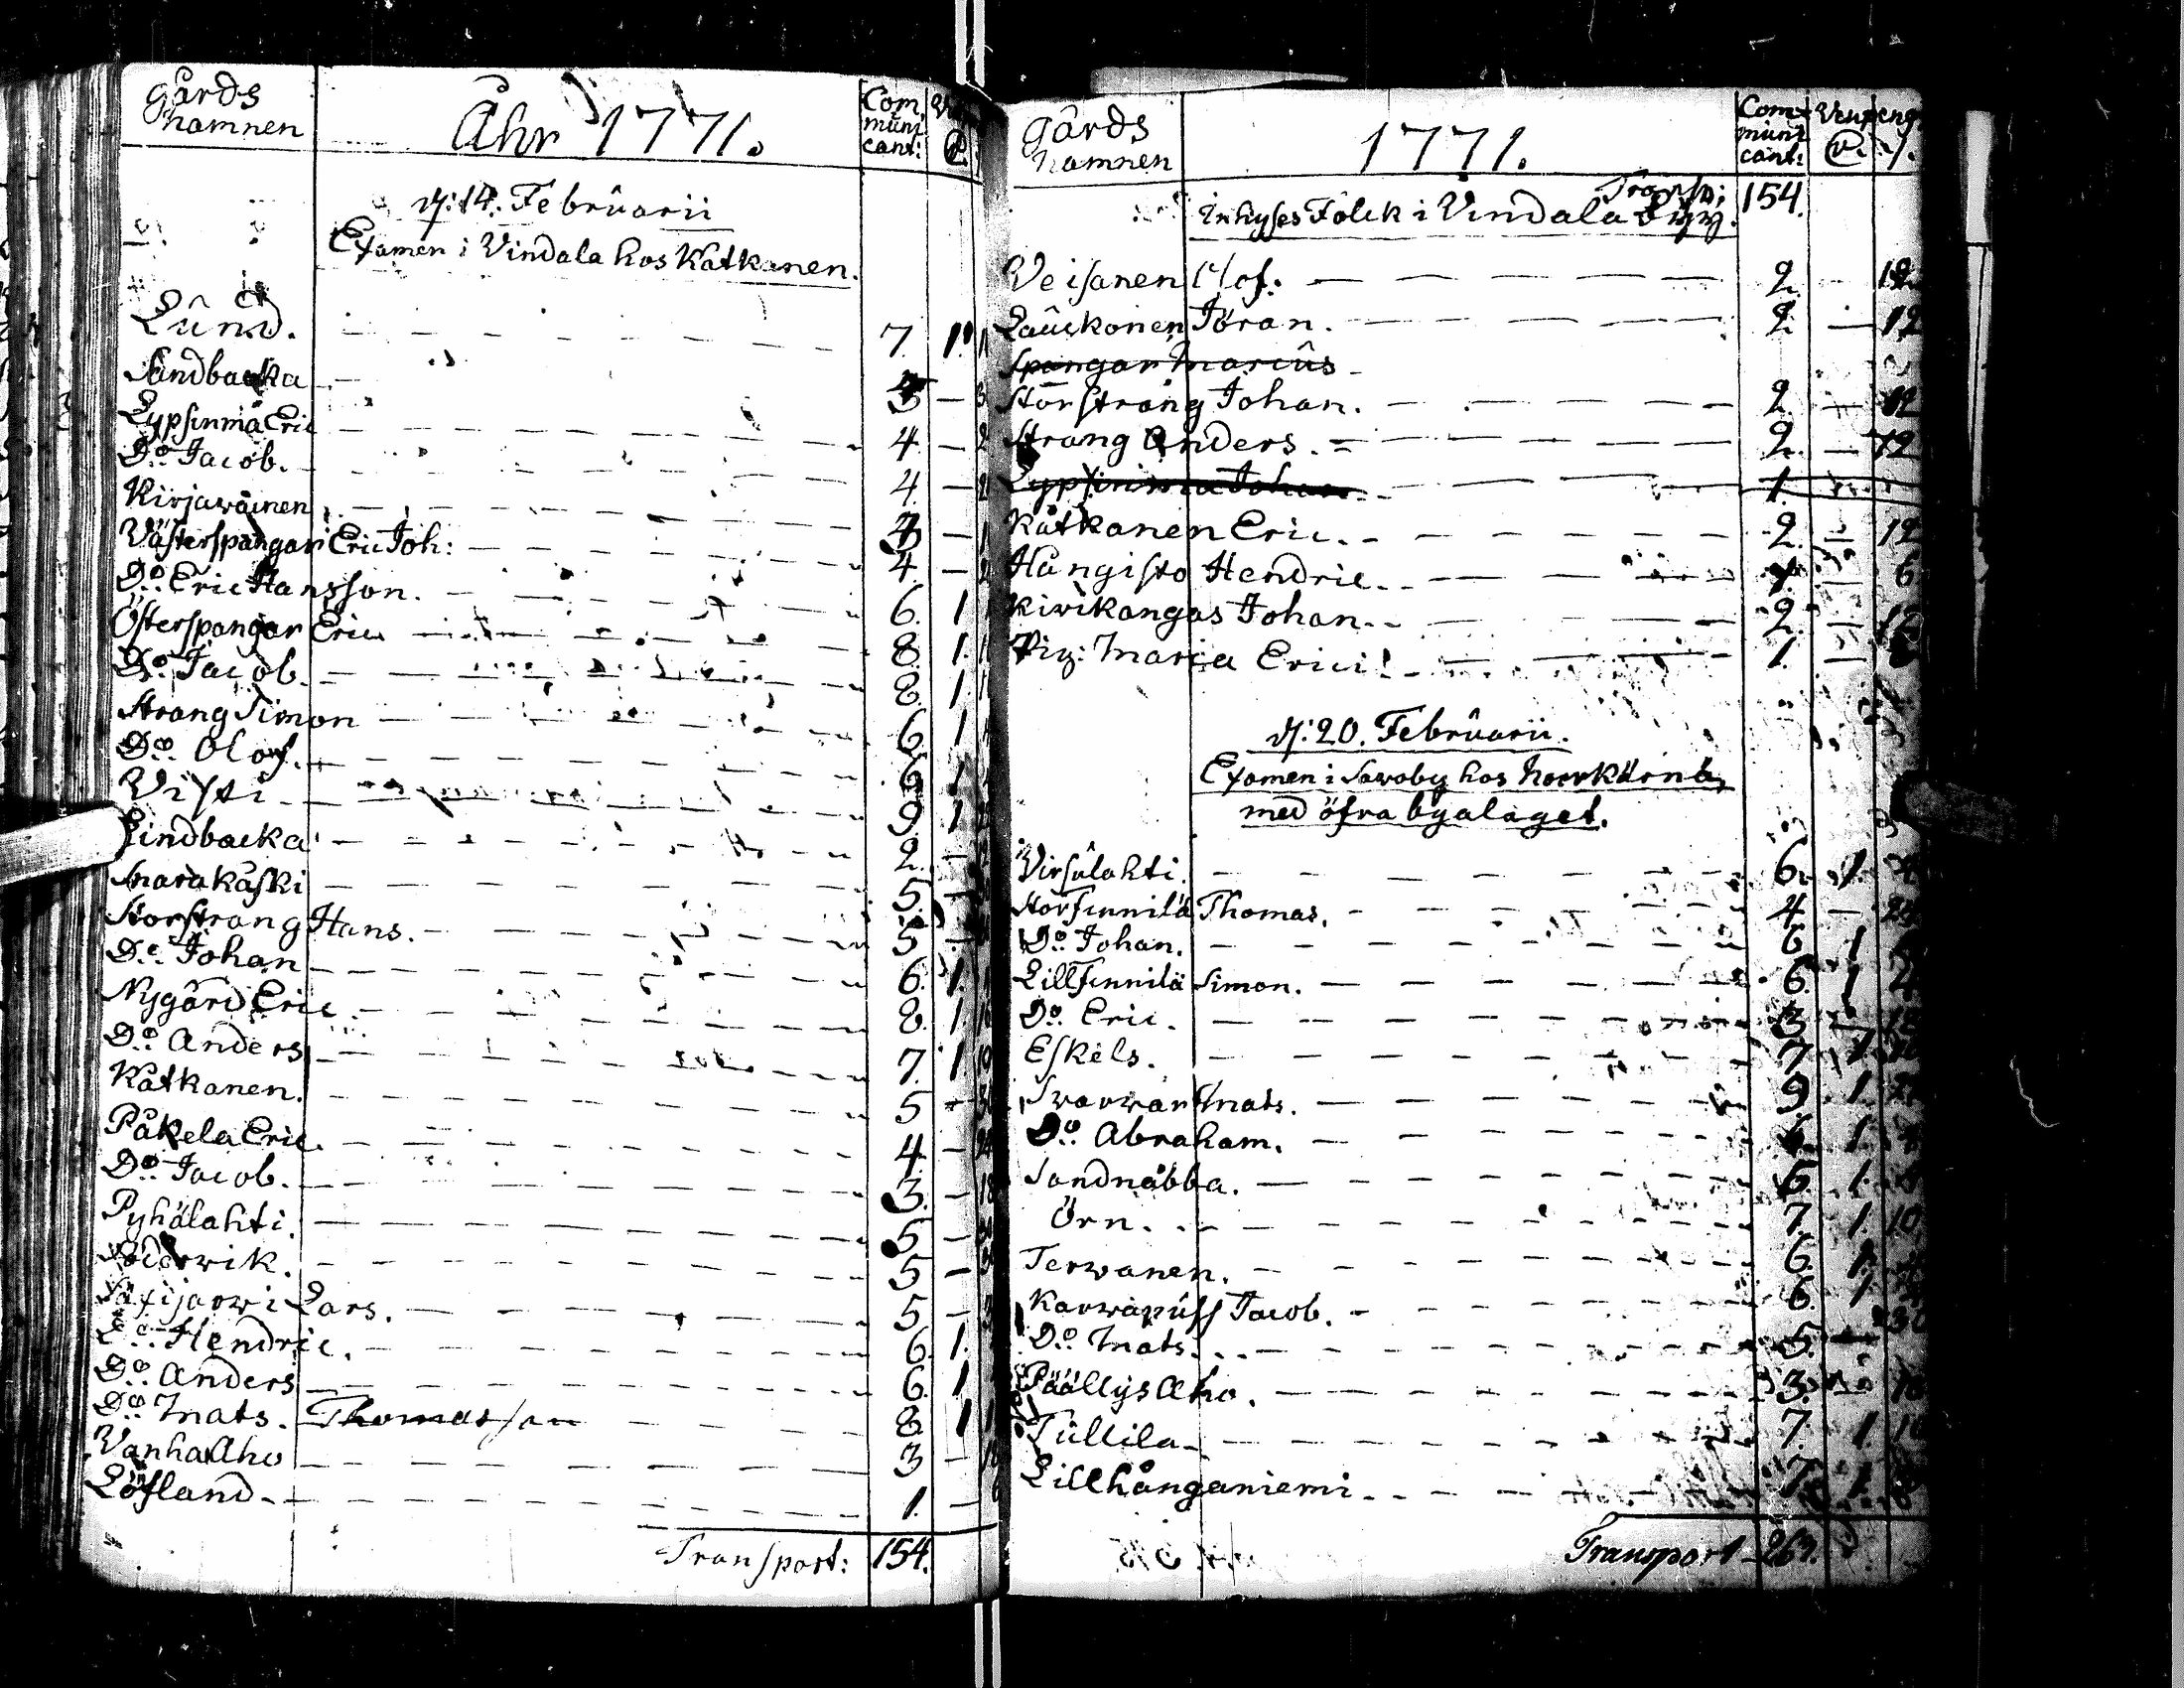 Gårds namnen Åhr 1771. Com muni cant:
d: 14. Februarii
Examen i Vindala hos Katkanen.
Lund. 7. 1.
Sandbacka 3 —
Lypsinmä Eric 4 —
Do Jacob. 4 —
Kirjawainen —
Västerspangar Eric Joh: 4 —
Do Eric Hansson. 6. 1
Österspangar Eric 8. 1.
Do Jacob. 8. 1
Strang Simon 6. 1
Do Olof. 6 1
Visti 9. 1
Lindbacka 2. —
Snarakåski 5. —
Storstrang Hans. 5 —
Do Johan 6. 1.
Nygård Eric 8. 1.
Do Anders 7. 1
Katkanen. 5 —
Påkela Eric 4 —
Do Jacob. 3. —
Pyhälahti. 5 —
Söderwik. 5 —
Saxijarwi Lars. 5 —
Do Hendric. 6. 1.
Do Anders 6. 1
Do Mats. Thomasson 8 1
Vanha Aho 3 —
Löfland 1. —
Transport: 154.
Gårds namnen 1771. Com muni cant:
Transp: 154.
Inhyses Folck i Vindala By.
Veisanen Olof: 2 — 12
Lauckonen Jöran. 2 — 12
Spangar Marcus
Storstrang Johan. 2 — 12
Strang Anders. 2. — 12
Lypsinmä Johan 1.
Katkanen Eric. 2. — 12
Hangisto Hendric. 1. — 6
Kiwikangas Johan 2. — 12
Pig: Maria Erici 1. —
d: 20. Februarii.
Examen i Sawoby hos
med öfra byalaget.
Virsulahti. 6. 1.
Storfinnilä Thomas. 4 — 24
Do Johan. 6 1
Lillfinnilä Simon. 6. 1
Do Eric. 3 —
Eskels. 7 1
Swarwar Mats. 9. 1.
Do Abraham. 6. 1.
Sandnäbba. 6. 1.
Örn. 7. 1. 10
Terwanen. 6. 1.
Karwapuss Jacob. 6. 1
Do Mats. 5. —
Päällys Aho. 3.
Tullila 7. 1.
Lillhånganiemi 7. 1.
Transport 267.